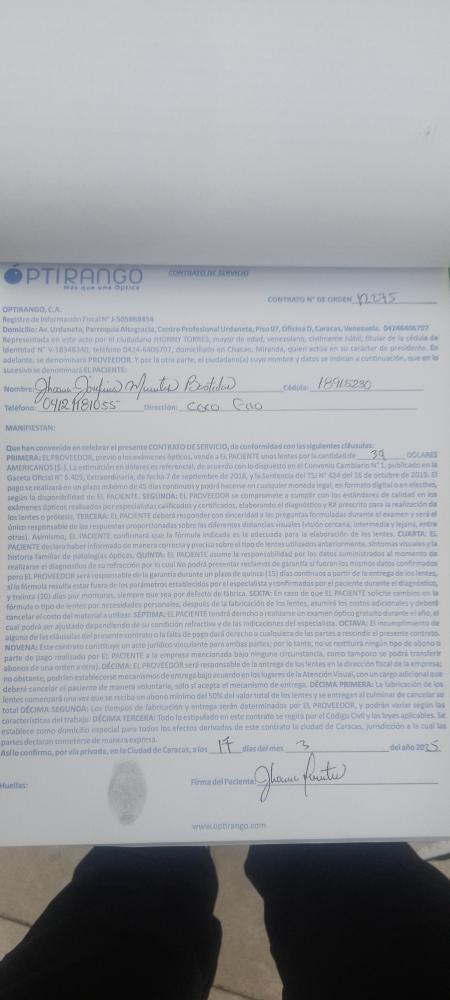 OPTIRANGO
Más que una Óptica
CONTRATO DE SERVICIO
CONTRATO N° DE ORDEN 12275
OPTIRANGO, C.A.
Registro de Información Fiscal N° J-505868454
Domicilio: Av. Urdaneta, Parroquia Altagracia, Centro Profesional Urdaneta, Piso 07, Oficina D, Caracas, Venezuela. 04246406797
Representada en este acto por el ciudadano JHONNY TORRES, mayor de edad, venezolano, civilmente hábil, titular de la cédula de
Identidad N° V-18348340, teléfono 0424-6406797, domiciliado en Chacao, Miranda, quien actúa en su carácter de presidente. En
adelante, se denominará PROVEEDOR. Y por la otra parte, el ciudadano(a) cuyo nombre y datos se indican a continuación, que en lo
sucesivo se denominará EL PACIENTE:
Nombre: Cédula: 18915230
Teléfono: 04129181055 Dirección: Coco
MANIFIESTAN:
Que han convenido en celebrar el presente CONTRATO DE SERVICIO, de conformidad con las siguientes cláusulas:
PRIMERA: EL PROVEEDOR, previo a los exámenes ópticos, vende a EL PACIENTE unos lentes por la cantidad de 39 DÓLARES
AMERICANOS ($-). La estimación en dólares es referencial, de acuerdo con lo dispuesto en el Convenio Cambiario N° 1, publicado en la
Gaceta Oficial N° 6.405, Extraordinaria, de fecha 7 de septiembre de 2018, y la Sentencia del TSJ N° 424 del 16 de octubre de 2019. El
pago se realizará en un plazo máximo de 45 días continuos y podrá hacerse en cualquier moneda legal, en formato digital o en efectivo,
según la disponibilidad de EL PACIENTE. SEGUNDA: EL PROVEEDOR se compromete a cumplir con los estándares de calidad en los
exámenes ópticos realizados por especialistas calificados y certificados, elaborando el diagnóstico y RX prescrito para la realización de
los lentes o prótesis. TERCERA: EL PACIENTE deberá responder con sinceridad a las preguntas formuladas durante el examen y será el
único responsable de las respuestas proporcionadas sobre las diferentes distancias visuales (visión cercana, intermedia y lejana, entre
otras). Asimismo, EL PACIENTE confirmará que la fórmula indicada es la adecuada para la elaboración de los lentes. CUARTA: EL
PACIENTE declara haber informado de manera correcta y precisa sobre el tipo de lentes utilizados anteriormente, síntomas visuales y la
historia familiar de patologías ópticas. QUINTA: EL PACIENTE asume la responsabilidad por los datos suministrados al momento de
realizarse el diagnostico de su refracción por lo cual No podrá presentar reclamos de garantía si fueran los mismos datos confirmados
pero EL PROVEEDOR será responsable de la garantía durante un plazo de quince (15) días continuos a partir de la entrega de los lentes,
si la fórmula resulta estar fuera de los parámetros establecidos por el especialista y confirmados por el paciente durante el diagnóstico,
y treinta (30) días por monturas, siempre que sea por defecto de fábrica. SEXTA: En caso de que EL PACIENTE solicite cambios en la
fórmula o tipo de lentes por necesidades personales, después de la fabricación de los lentes, asumirá los costos adicionales y deberá
cancelar el costo del material a utilizar. SÉPTIMA: EL PACIENTE tendrá derecho a realizarse un examen óptico gratuito durante el año, el
cual podrá ser ajustado dependiendo de su condición refractiva y de las indicaciones del especialista. OCTAVA: El incumplimiento de
alguna de las cláusulas del presente contrato o la falta de pago dará derecho a cualquiera de las partes a rescindir el presente contrato.
NOVENA: Este contrato constituye un acto jurídico vinculante para ambas partes; por lo tanto, no se restituirá ningún tipo de abono o
parte de pago realizado por EL PACIENTE a la empresa mencionada bajo ninguna circunstancia, como tampoco se podrá transferir
abonos de una orden a otra). DÉCIMA: EL PROVEEDOR será responsable de la entrega de los lentes en la dirección fiscal de la empresa;
no obstante, podrían establecerse mecanismos de entrega bajo acuerdo en los lugares de la Atención Visual, con un cargo adicional que
deberá cancelar el paciente de manera voluntaria, solo si acepta el mecanismo de entrega. DÉCIMA PRIMERA: La fabricación de los
lentes comenzará una vez que se reciba un abono mínimo del 50% del valor total de los lentes y se entregan al culminar de cancelar su
total DÉCIMA SEGUNDA: Los tiempos de fabricación y entrega serán determinados por EL PROVEEDOR, y podrán variar según las
características del trabajo. DÉCIMA TERCERA: Todo lo estipulado en este contrato se regirá por el Código Civil y las leyes aplicables. Se
establece como domicilio especial para todos los efectos derivados de este contrato la ciudad de Caracas, jurisdicción a la cual las
partes declaran someterse de manera expresa.
Así lo confirmo, por vía privada, en la Ciudad de Caracas, a los 17 días del mes 3 del año 2025
Huellas:
Firma del Paciente:
www.optirango.com